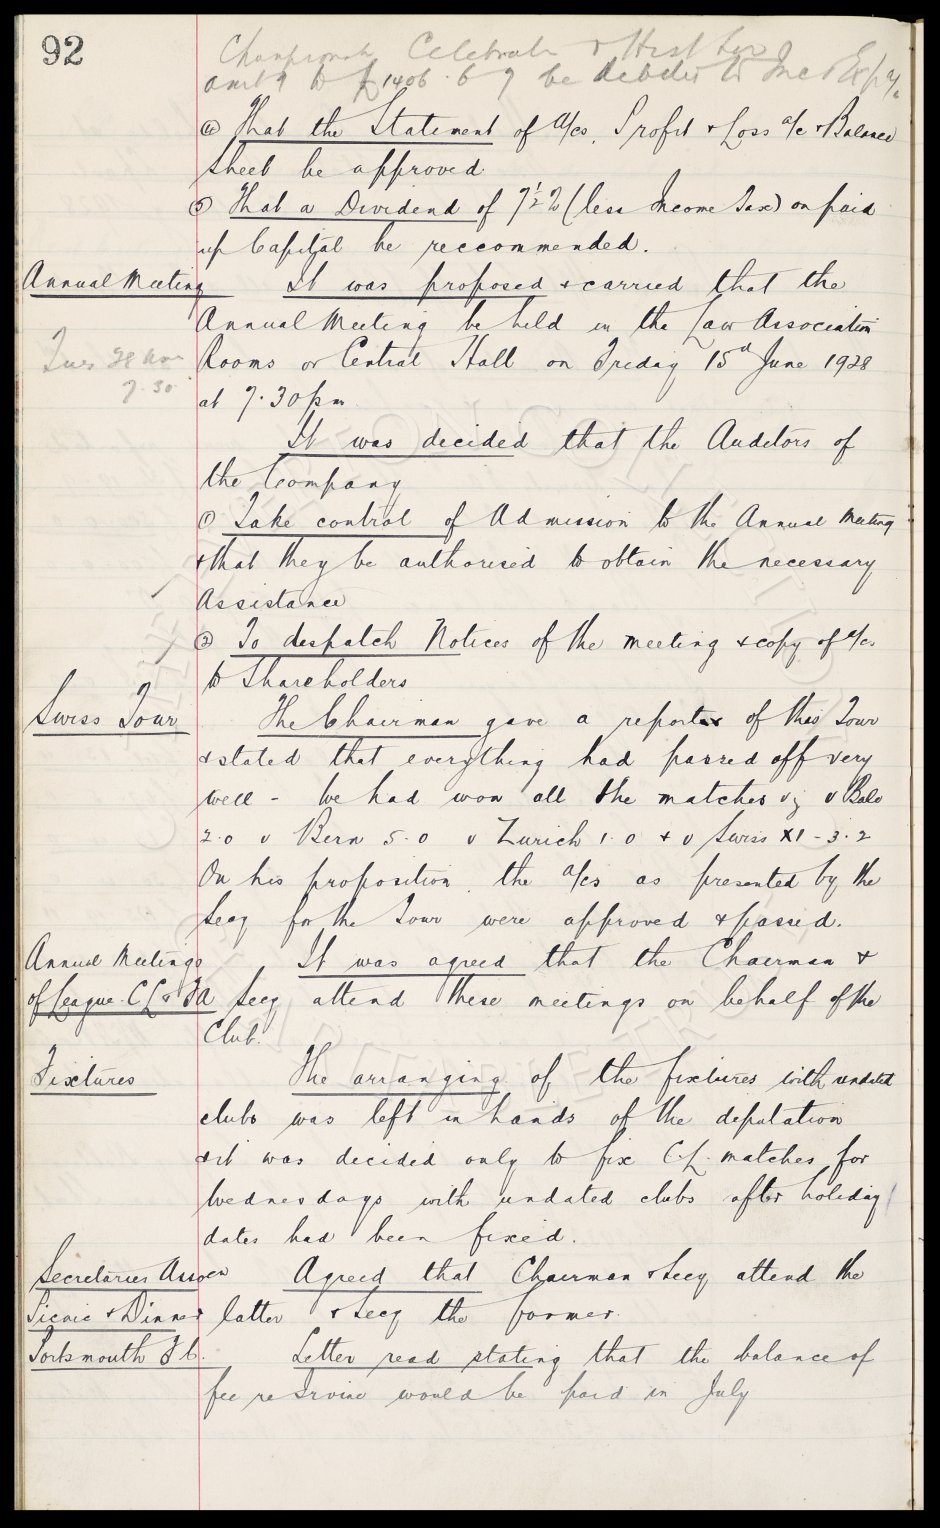 92
Championship Celebration & Hist
amtg to £1406.6.7 be debited to Inc & Exp a/c
④ That the Statement of a/cs, Profit & Loss a/c & Balance
Sheet be approved
⑤ That a Dividend of 7½% (less Income Tax) on paid
up Capital be reccommended.
Annual Meeting It was proposed & carried that the
Annual Meeting be held in the Law Association
Rooms or Central Hall on Friday 15th June 1928
7.30
at 7.30pm
It was decided that the Auditors of
the Company
① Take control of Admission to the Annual Meeting
& that they be authorised to obtain the necessary
Assistance
② To despatch Notices of the meeting & copy of a/cs
to Shareholders
Swiss Tour The Chairman gave a report of this Tour
& stated that everything had passed off very
well - we had won all the matches viz v Bale
2.0 v Bern 5.0 v Zurich 1.0 & v Swiss XI - 3.2
On his proposition, the a/cs as presented by the
Secy for the Tour were approved & passed.
Annual Meetings It was agreed that the Chairman &
of League. C.L. & FA Secy attend these meetings on behalf of the
Club.
Fixtures The arranging of the fixtures with undated
clubs was left in hands of the deputation
& it was decided only to fix C.L. matches for
Wednesdays with undated clubs after holiday
dates had been fixed.
Secretaries Assocn Agreed that Chairman & Secy attend the
Picnic & Dinner latter & Secy the former.
Portsmouth F.C. Letter read stating that the balance of
fee re Irvine would be paid in July